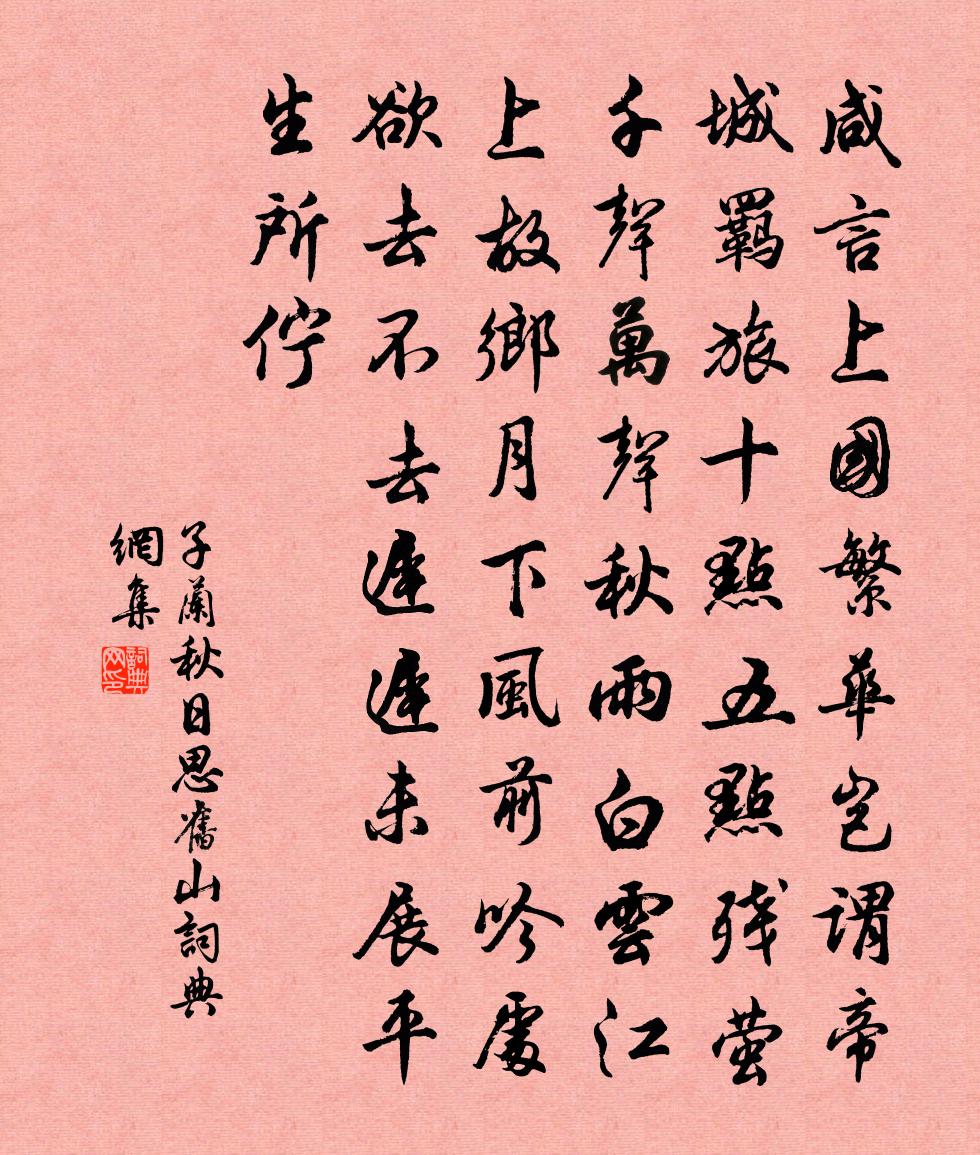 咸言上國繁華豈謂帝
城羈旅十點五點殘螢
千聲萬聲秋雨白雲江
上故鄉月下風前吟處
欲去不去遲遲未展平
生所佇
子蘭秋日思舊山詞典
網集
詞典网印